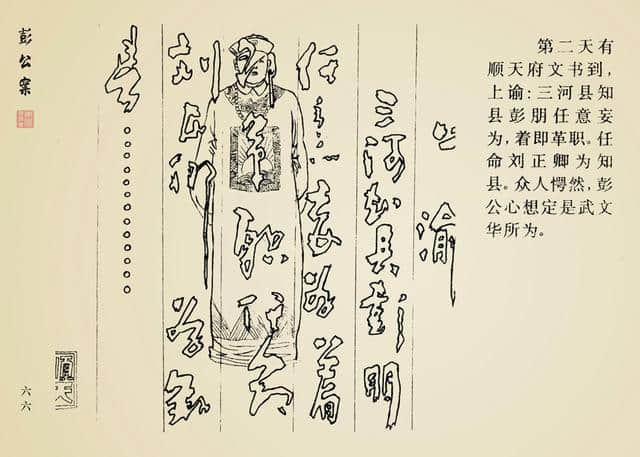 第二天有
顺天府文书到，
上谕：三河县知
县彭朋任意妄
为，着即革职。任
命刘正卿为知
县。众人愕然，彭
公心想定是武文
华所为。
上谕
三河知县彭朋
任意妄为着
革职任命
彭公案
六六